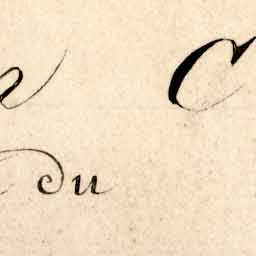 C
du